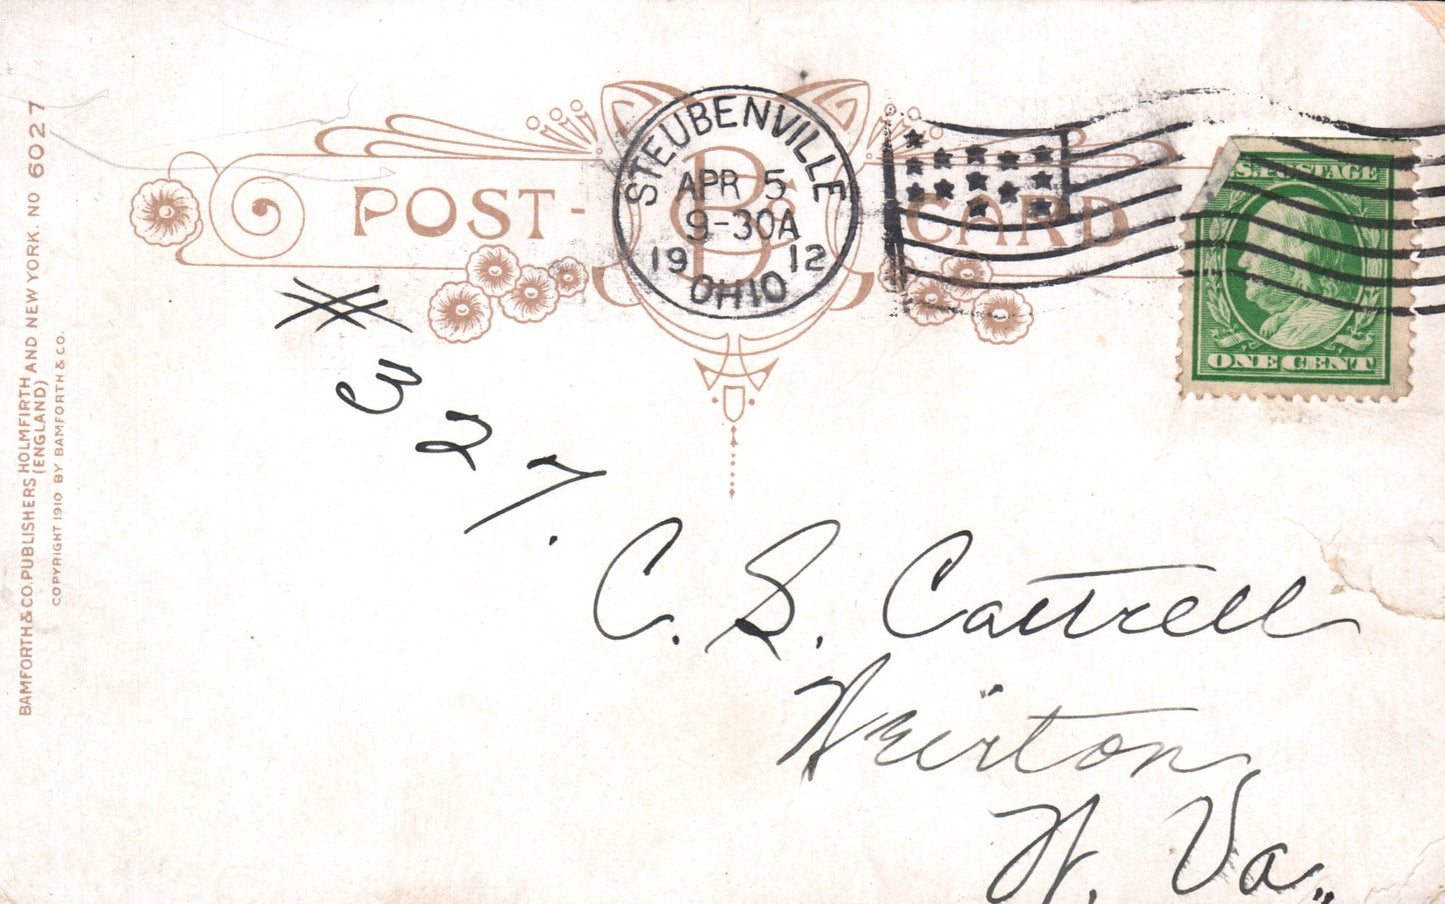 POST-CARD
B & B
STEUBENVILLE
APR 5
9-30A
1912
OHIO
U.S. POSTAGE
ONE CENT
# 327.
C. S. Cattrell
Weirton,
W. Va.,
BAMFORTH & CO. PUBLISHERS HOLMFIRTH (ENGLAND) AND NEW YORK. NO 6027
COPYRIGHT 1910 BY BAMFORTH & CO.